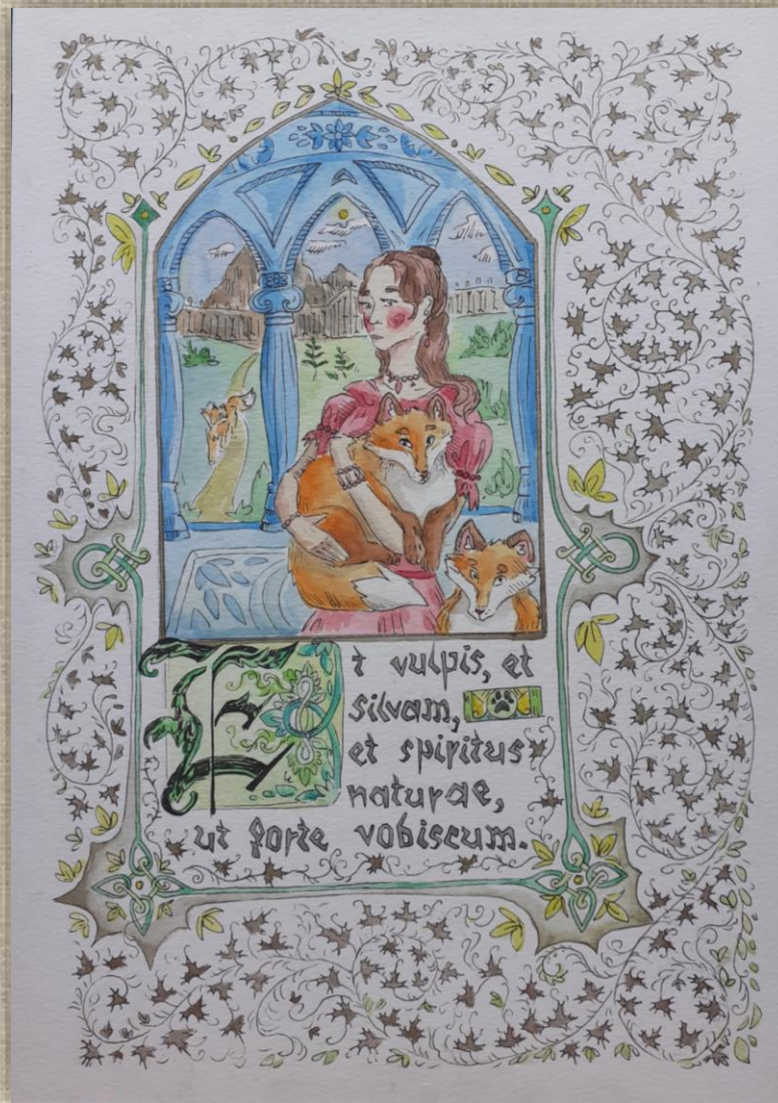 Et vulpis, et
silvam,
et spiritus
naturae,
ut forte vobiscum.